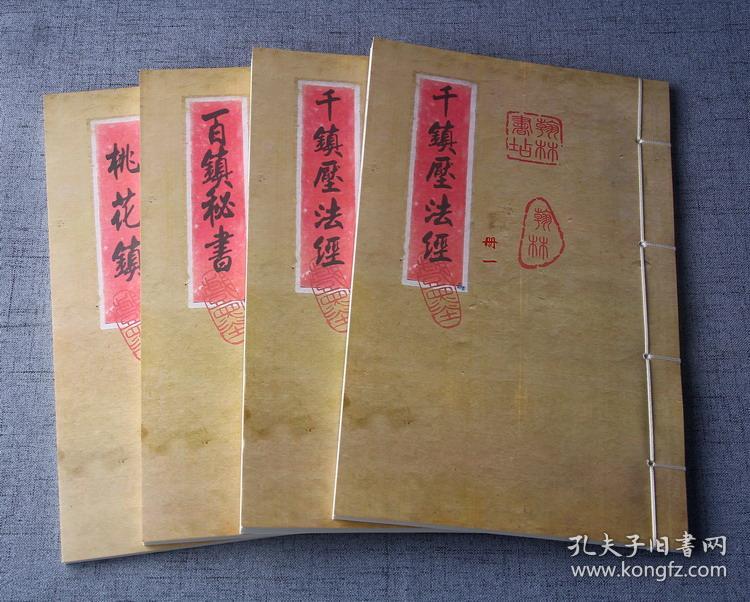 桃花鎮
百鎮秘書
千鎮壓法經
千鎮壓法經
册一
翰林書坫
翰林
孔夫子旧書网
www.kongfz.com